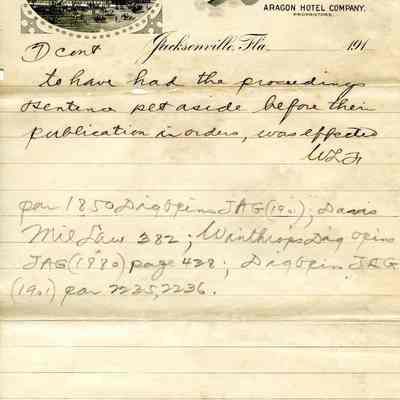 ARAGON HOTEL COMPANY.
PROPRIETORS.
D cont
Jacksonville, Fla. 191
to have had the proceeding
sentence set aside before their
publication in orders, was effected
par 1850 Dig Opins JAG (1901); Davis
Mil Law 382; Winthrop's Dig Opins
JAG (1880) page 428; Dig Opin JAG
(1901) par 2235, 2236.